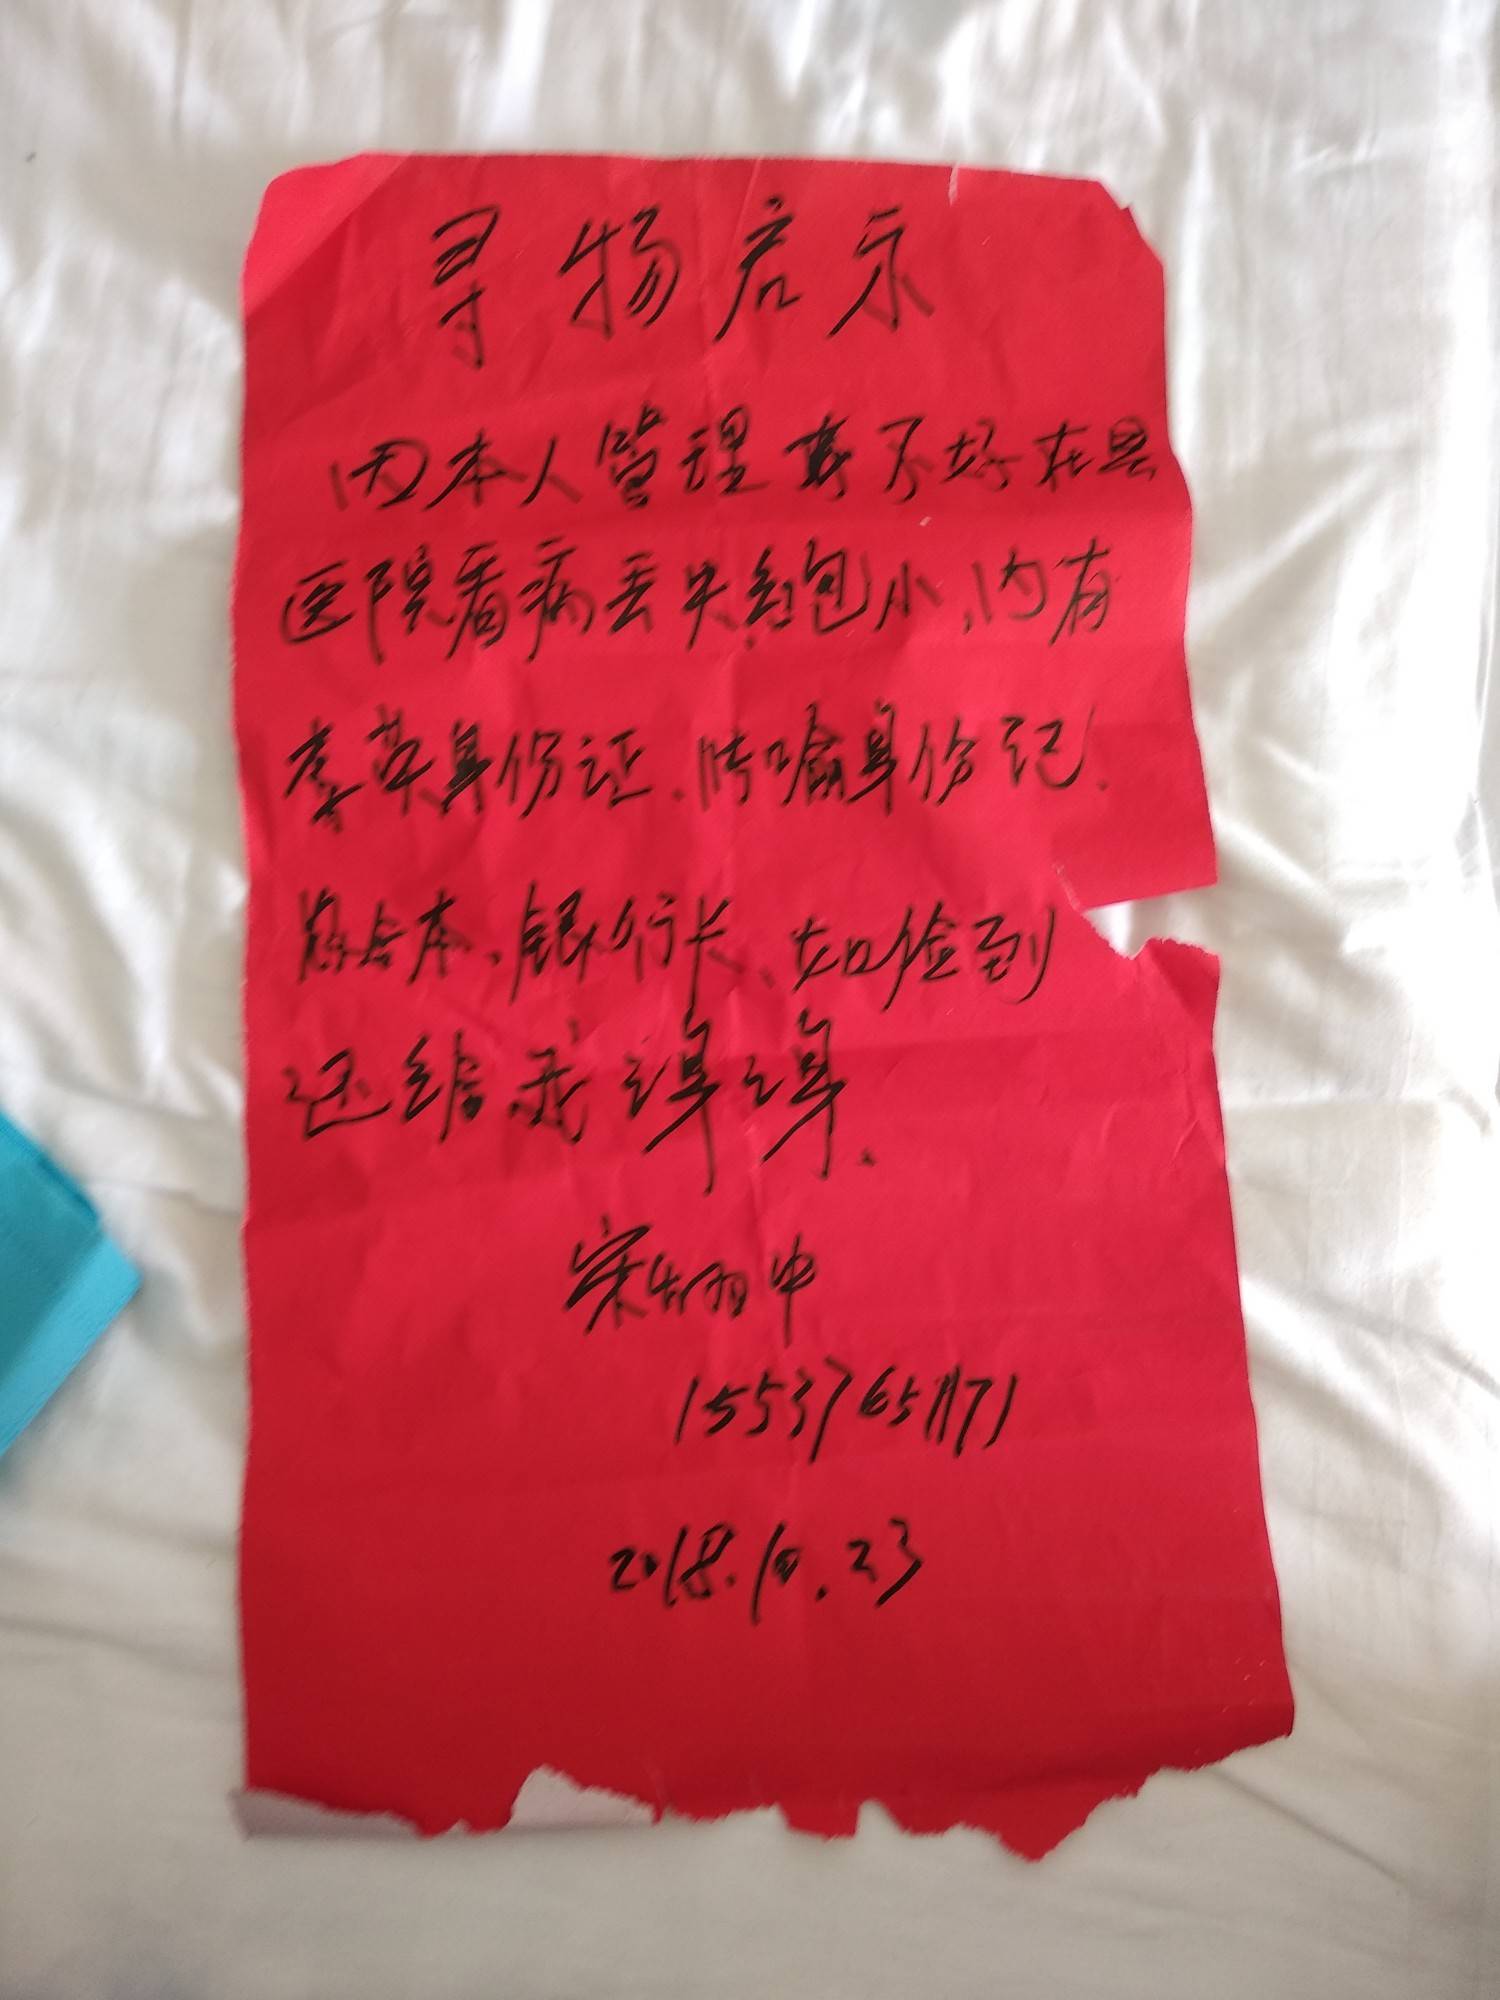 寻物启示
因本人管理 不好在县
医院看病丢失红包小,内有
李英身份证、身份记、
本、银行长、如捡到
还给我谢谢.
宋
2018.10.23